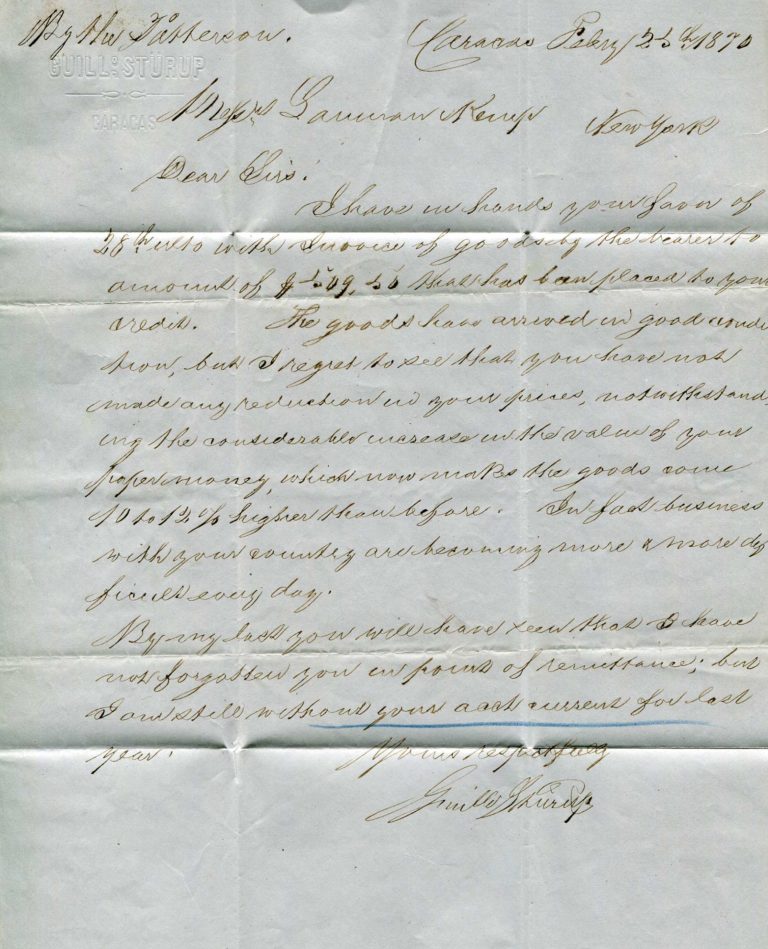 By the Patterson. Caracas Febry 25th 1870
GUILLO STÜRUP
CARACAS
Messrs Lanman Kemp New York
Dear Sirs!
I have in hands your favor of
28th ulto with Invoice of goods by the bearer to
amount of $ 509,50 that has been placed to your
credit. The goods have arrived in good condi
tion, but I regret to see that you have not
made any reduction in your prices, notwithstand-
ing the considerable increase in the value of your
paper money, which now makes the goods come
10 to 12% higher than before. In fact business
with your country are becoming more & more dif
ficult every day.
By my last you will have seen that I have
not forgotten you in point of remittance; but
I am still without your acct current for last
year. Yours respectfully
Guillo Stürup